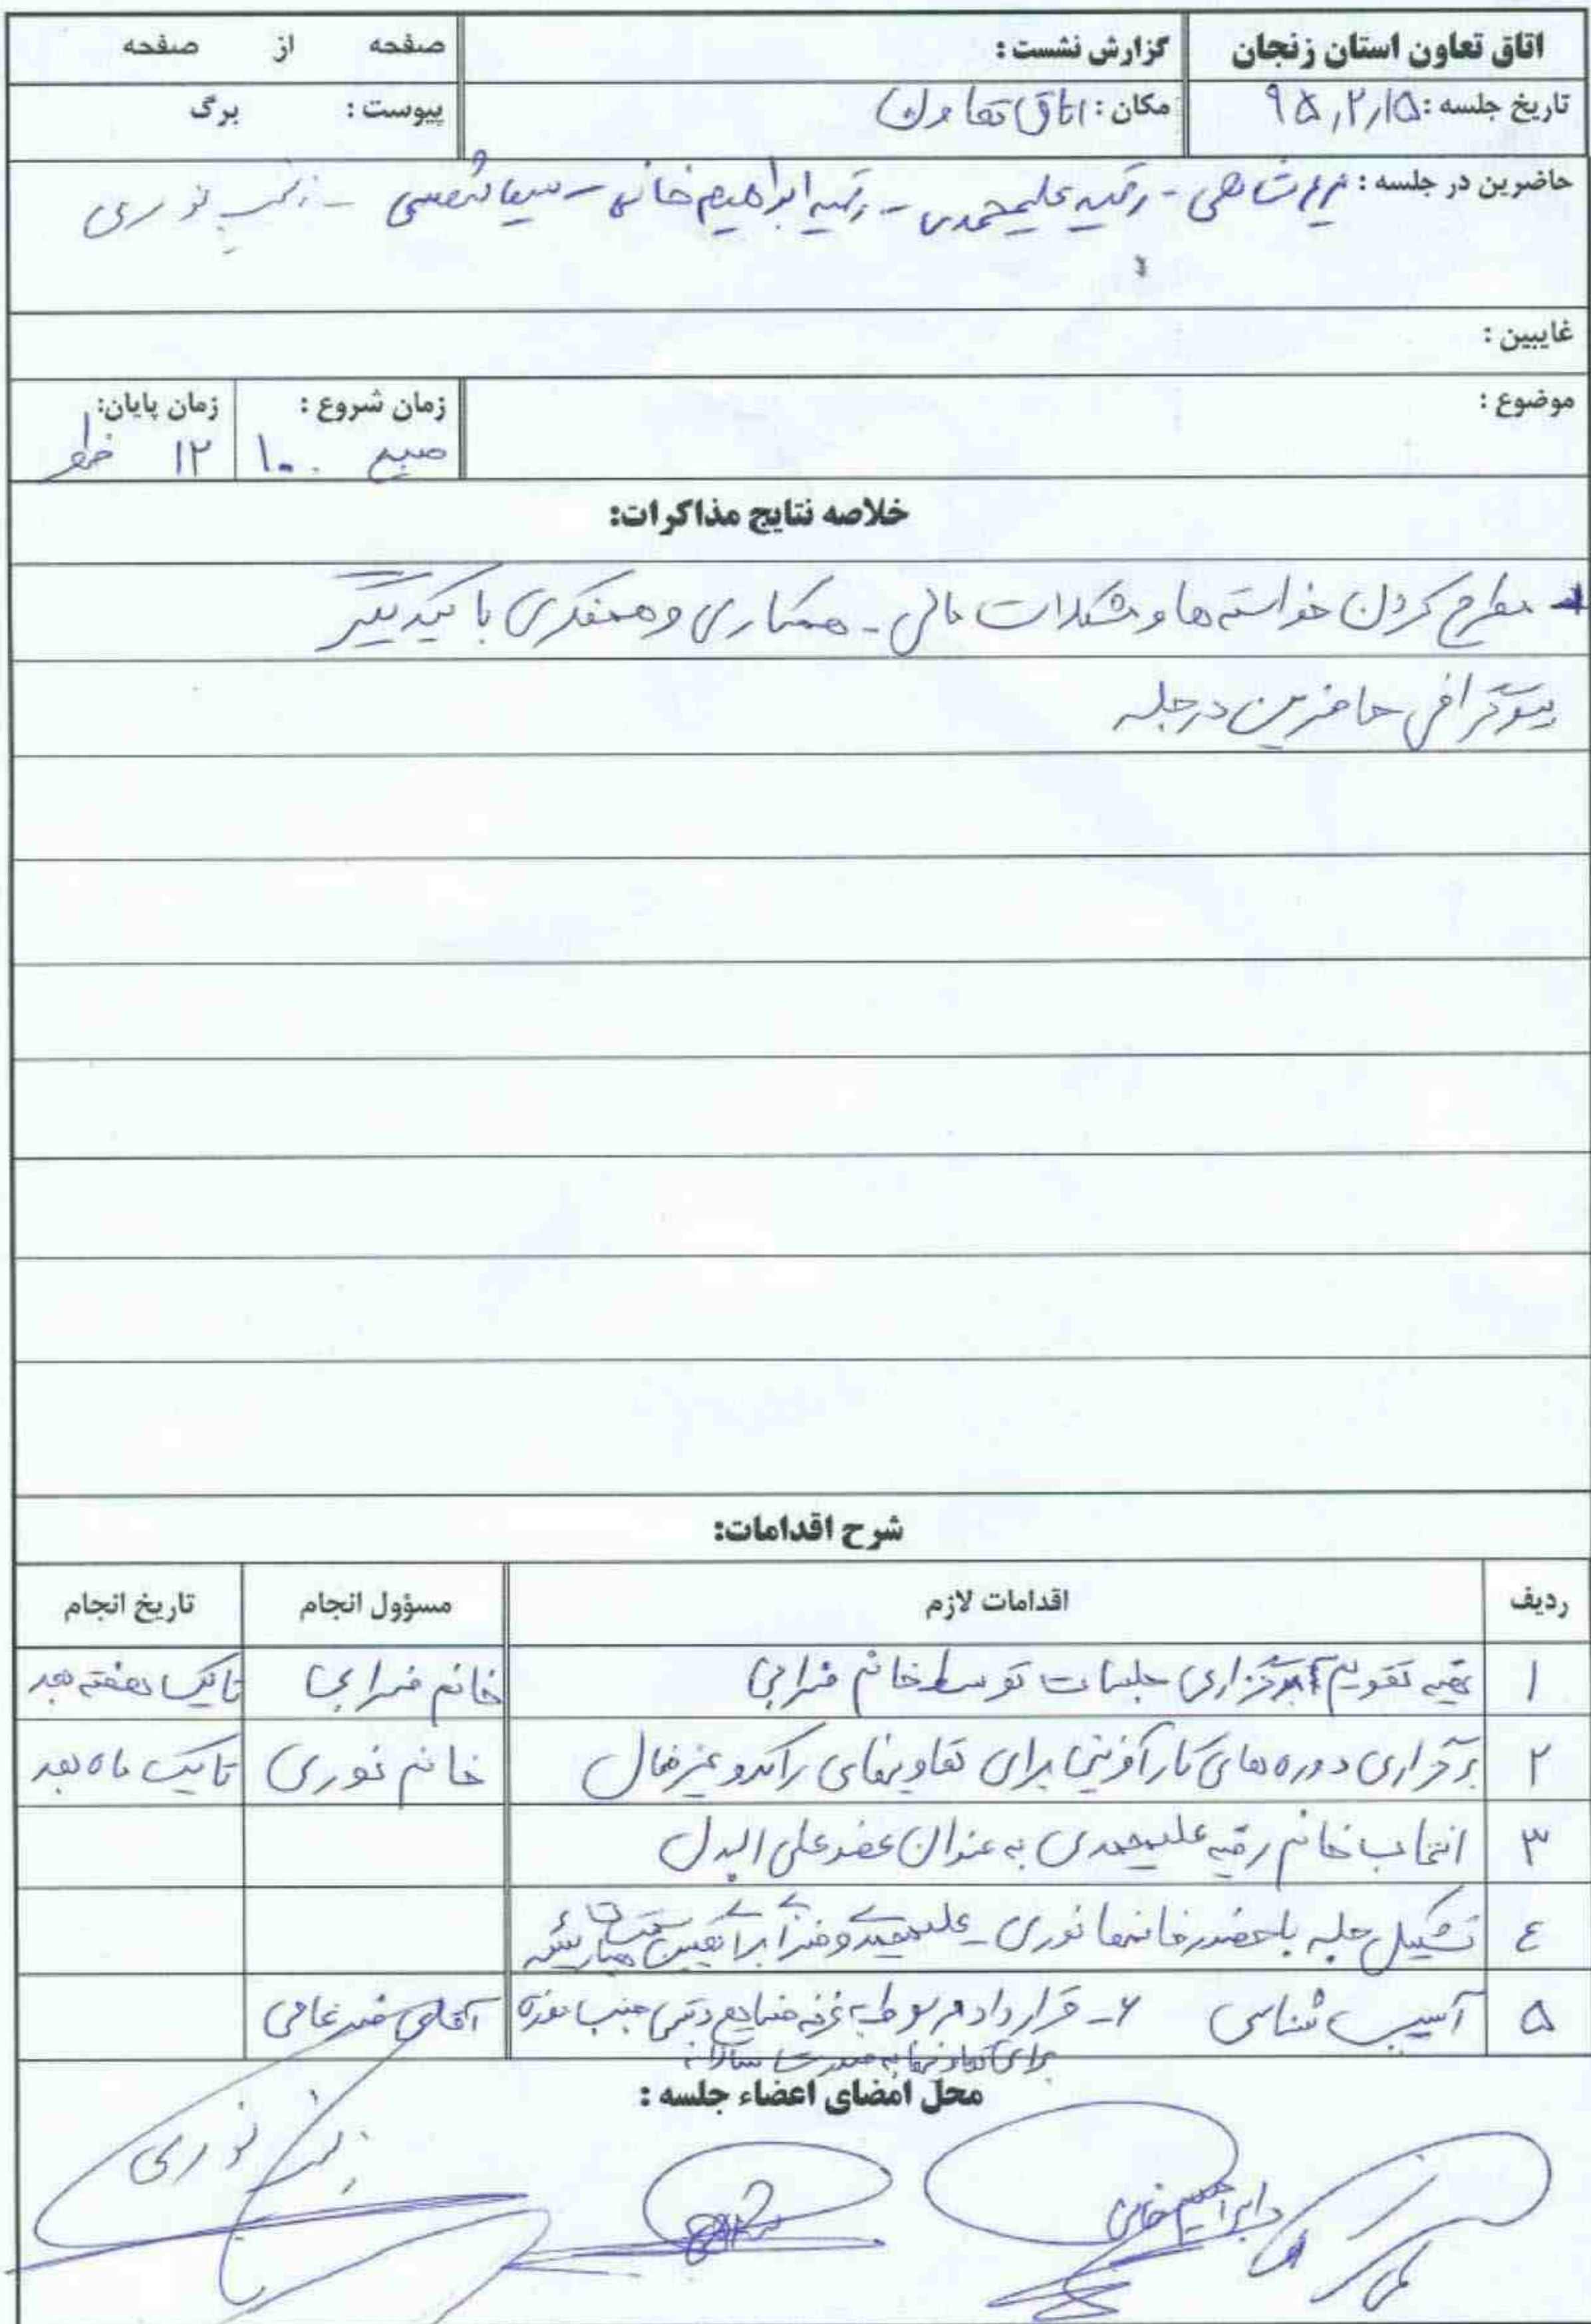 اتاق تعاون استان زنجان
گزارش نشست :
صفحه از صفحه
تاریخ جلسه : ۹۵,۲,۱۵
مکان : اتاق تعاون
پیوست : برگ
حاضرین در جلسه : مریم شاهی - رقیه علیمحمدی - رقیه ابراهیم خانی - سیما شمسی - زینب نوری
غایبین :
موضوع :
زمان شروع :
صبح ۱۰
زمان پایان:
۱۲ ظهر
خلاصه نتایج مذاکرات:
مطرح کردن خواسته ها و مشکلات مالی - همکاری و همفکری با یکدیگر
بیوگرافی حاضرین در جلسه
شرح اقدامات:
ردیف اقدامات لازم مسؤول انجام تاریخ انجام
۱ تهیه تقویم برگزاری جلسات توسط خانم خانم تا یک هفته بعد
۲ برگزاری دوره های کارآفرینی برای تعاونیهای راکد و غیرفعال خانم نوری تا یک ماه بعد
۳ انتخاب خانم رقیه علیمحمدی به عنوان عضو علی البدل
٤ تشکیل جلسه با حضور خانمها نوری - علیمحمدی و
۵ آسیب شناسی ۶- قرارداد مربوط به غرفه صنایع دستی جنب موزه آقای
برای تعاونیها به صورت سالانه
محل امضای اعضاء جلسه :
زینب نوری
ابراهیم خانی